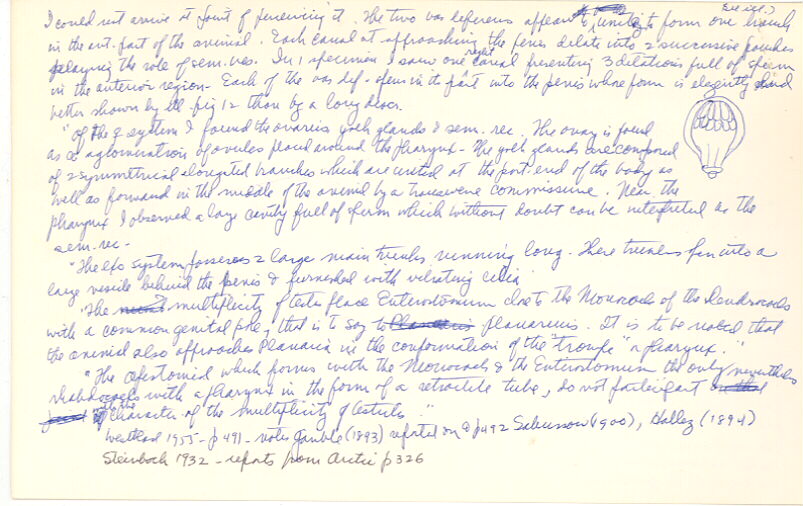 I could not arrive at point of perceiving it. The two vas deferens appear to unite to form one branch
in the ant. part of the animal. Each canal at approaching the penis dilate into 2 successive pouches
playing the role of sem. ves. In 1 specimen I saw one right canal presenting 3 dilations full of sperm
in the anterior region. Each of the vas def. opens in the part into the penis whose form is elegantly and
better shown by ill. fig 12 than by a long descr.
"Of the ♀ system I found the ovaries yolk glands & sem. rec. The ovary is found
as a aglomeration of ovules placed around the pharynx. The yolk glands are composed
of 2 symmetrical elongated branches which are united at the post. end of the body as
well as forward in the middle of the animal by a transverse commissure. Near the
pharynx I observed a large cavity full of sperm which without doubt can be interpreted as the
sem. rec.
"The exo system possesses 2 large main trunks running long. These trunks open into a
large vesicle behind the penis & furnished with vibrating cilia
"The multiplicity of testes place Enterostomum close to the Monocoels of the Dendrocoels
with a common genital pore, that is to say to planarians. It is to be noted that
the animal also approaches Planaria in the conformation of the "trompe" or pharynx."
"The Opistomid which forms with the Monocoels & the Enterostomum the only
rhabdocoels with a pharynx in the form of a retractile tube, do not participate
with the character of the multiplicity of testicles"
Westblad 1955 - p 491 - notes Gamble (1893) reported on & p 492 Sabussow (1900), Hallez (1894)
Steinbock 1932 - reports from Arctic p 326